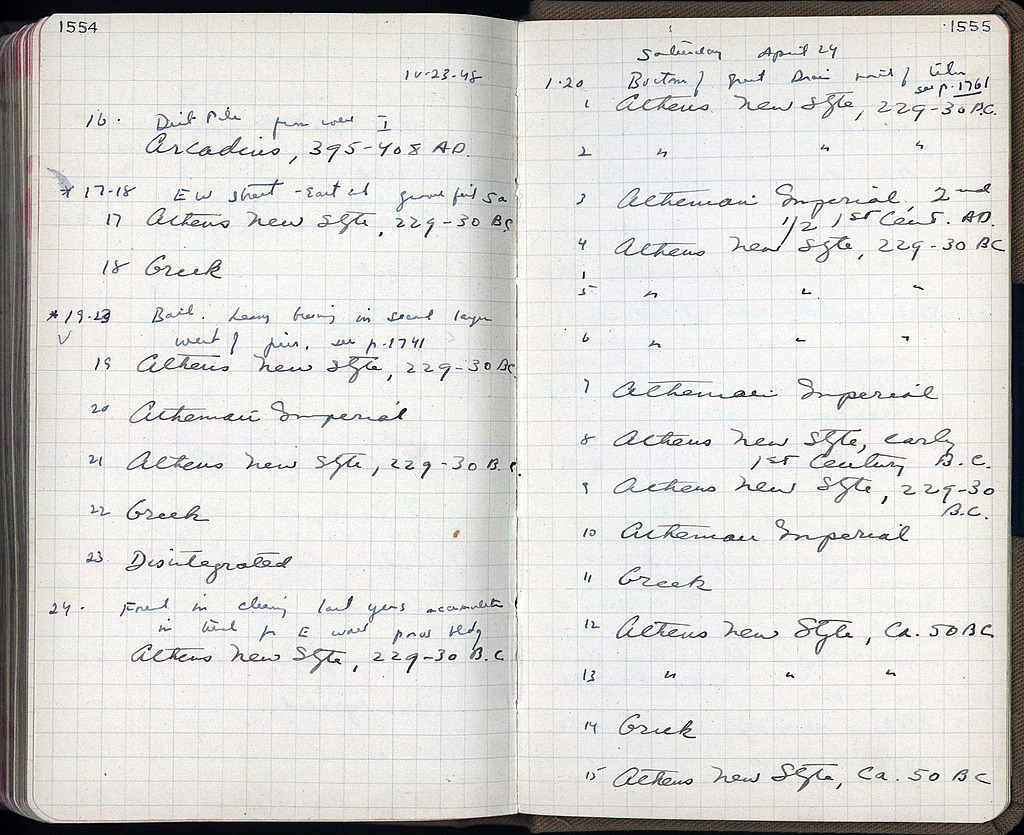 1554
IV-23-48
16. Dirt Pile from well I
Arcadius, 395-408 AD.
* 17-18 EW street - East
17 Athens New Style, 229-30 BC
18 Greek
* 19-23 in second layer
west of see p. 1741
19 Athens New Style, 229-30 BC
20 Athenian Imperial
21 Athens New Style, 229-30 B.C.
22 Greek
23. Disintegrated
24. Found in cleaning last years accumulation
in E wall bldg
Athens New Style, 229-30 B.C.
1555
Saturday April 24
1-20 Bottom of Great Drain
see p. 1761
1 Athens New Style, 229-30 B.C.
2 " " "
3 Athenian Imperial, 2nd
1/2 1st Cent. AD.
4 Athens New Style, 229-30 BC
1
5 " " "
6 " " "
7 Athenian Imperial
8 Athens New Style, early
1st Century B.C.
9 Athens New Style, 229-30
B.C.
10 Athenian Imperial
11 Greek
12 Athens New Style, Ca. 50 BC
13 " " "
14 Greek
15 Athens New Style, Ca. 50 BC